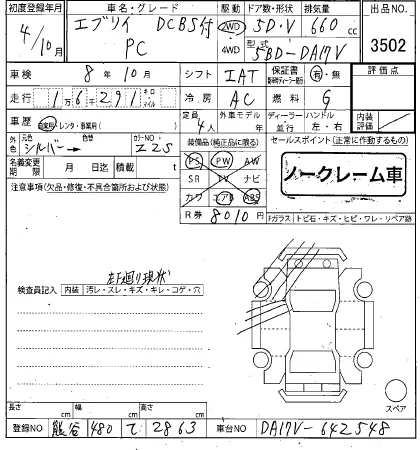 初度登録年月 車名・グレード 駆動 ドア数・形状 排気量 出品NO.
4/10月 エブリイ DCBS付 2WD 5D・V 660cc 3502
PC 4WD 型式 5BD-DA17V
車検 8年10月 シフト IAT 保証書 有・無 評価点
走行 1万6千291 キロ マイル 冷房 AC 燃料 G
車歴 自家用・レンタ・事業用( ) 定員 4人 外車モデル 年 ディーラー 並行 ハンドル 左・右 内装評価
外色 元色 シルバー→ 色替 カラーNO Z2S 装備品(純正品に限る) セールスポイント(正常に作動するもの)
名義変更期限 月 日迄 積載 t PS PW AW
注意事項(欠品・修復・不具合箇所および状態) SR TV ナビ ノークレーム車
カワ エアB ABS
R券 8010円
Fガラス トビ石・キズ・ヒビ・ワレ・リペア跡
左下廻り現状
検査員記入 内装 汚レ・スレ・キズ・キレ・コゲ・穴
スペア
長さ cm 幅 cm 高さ cm
登録NO 熊谷 480 て 2863 車台NO DA17V-642548